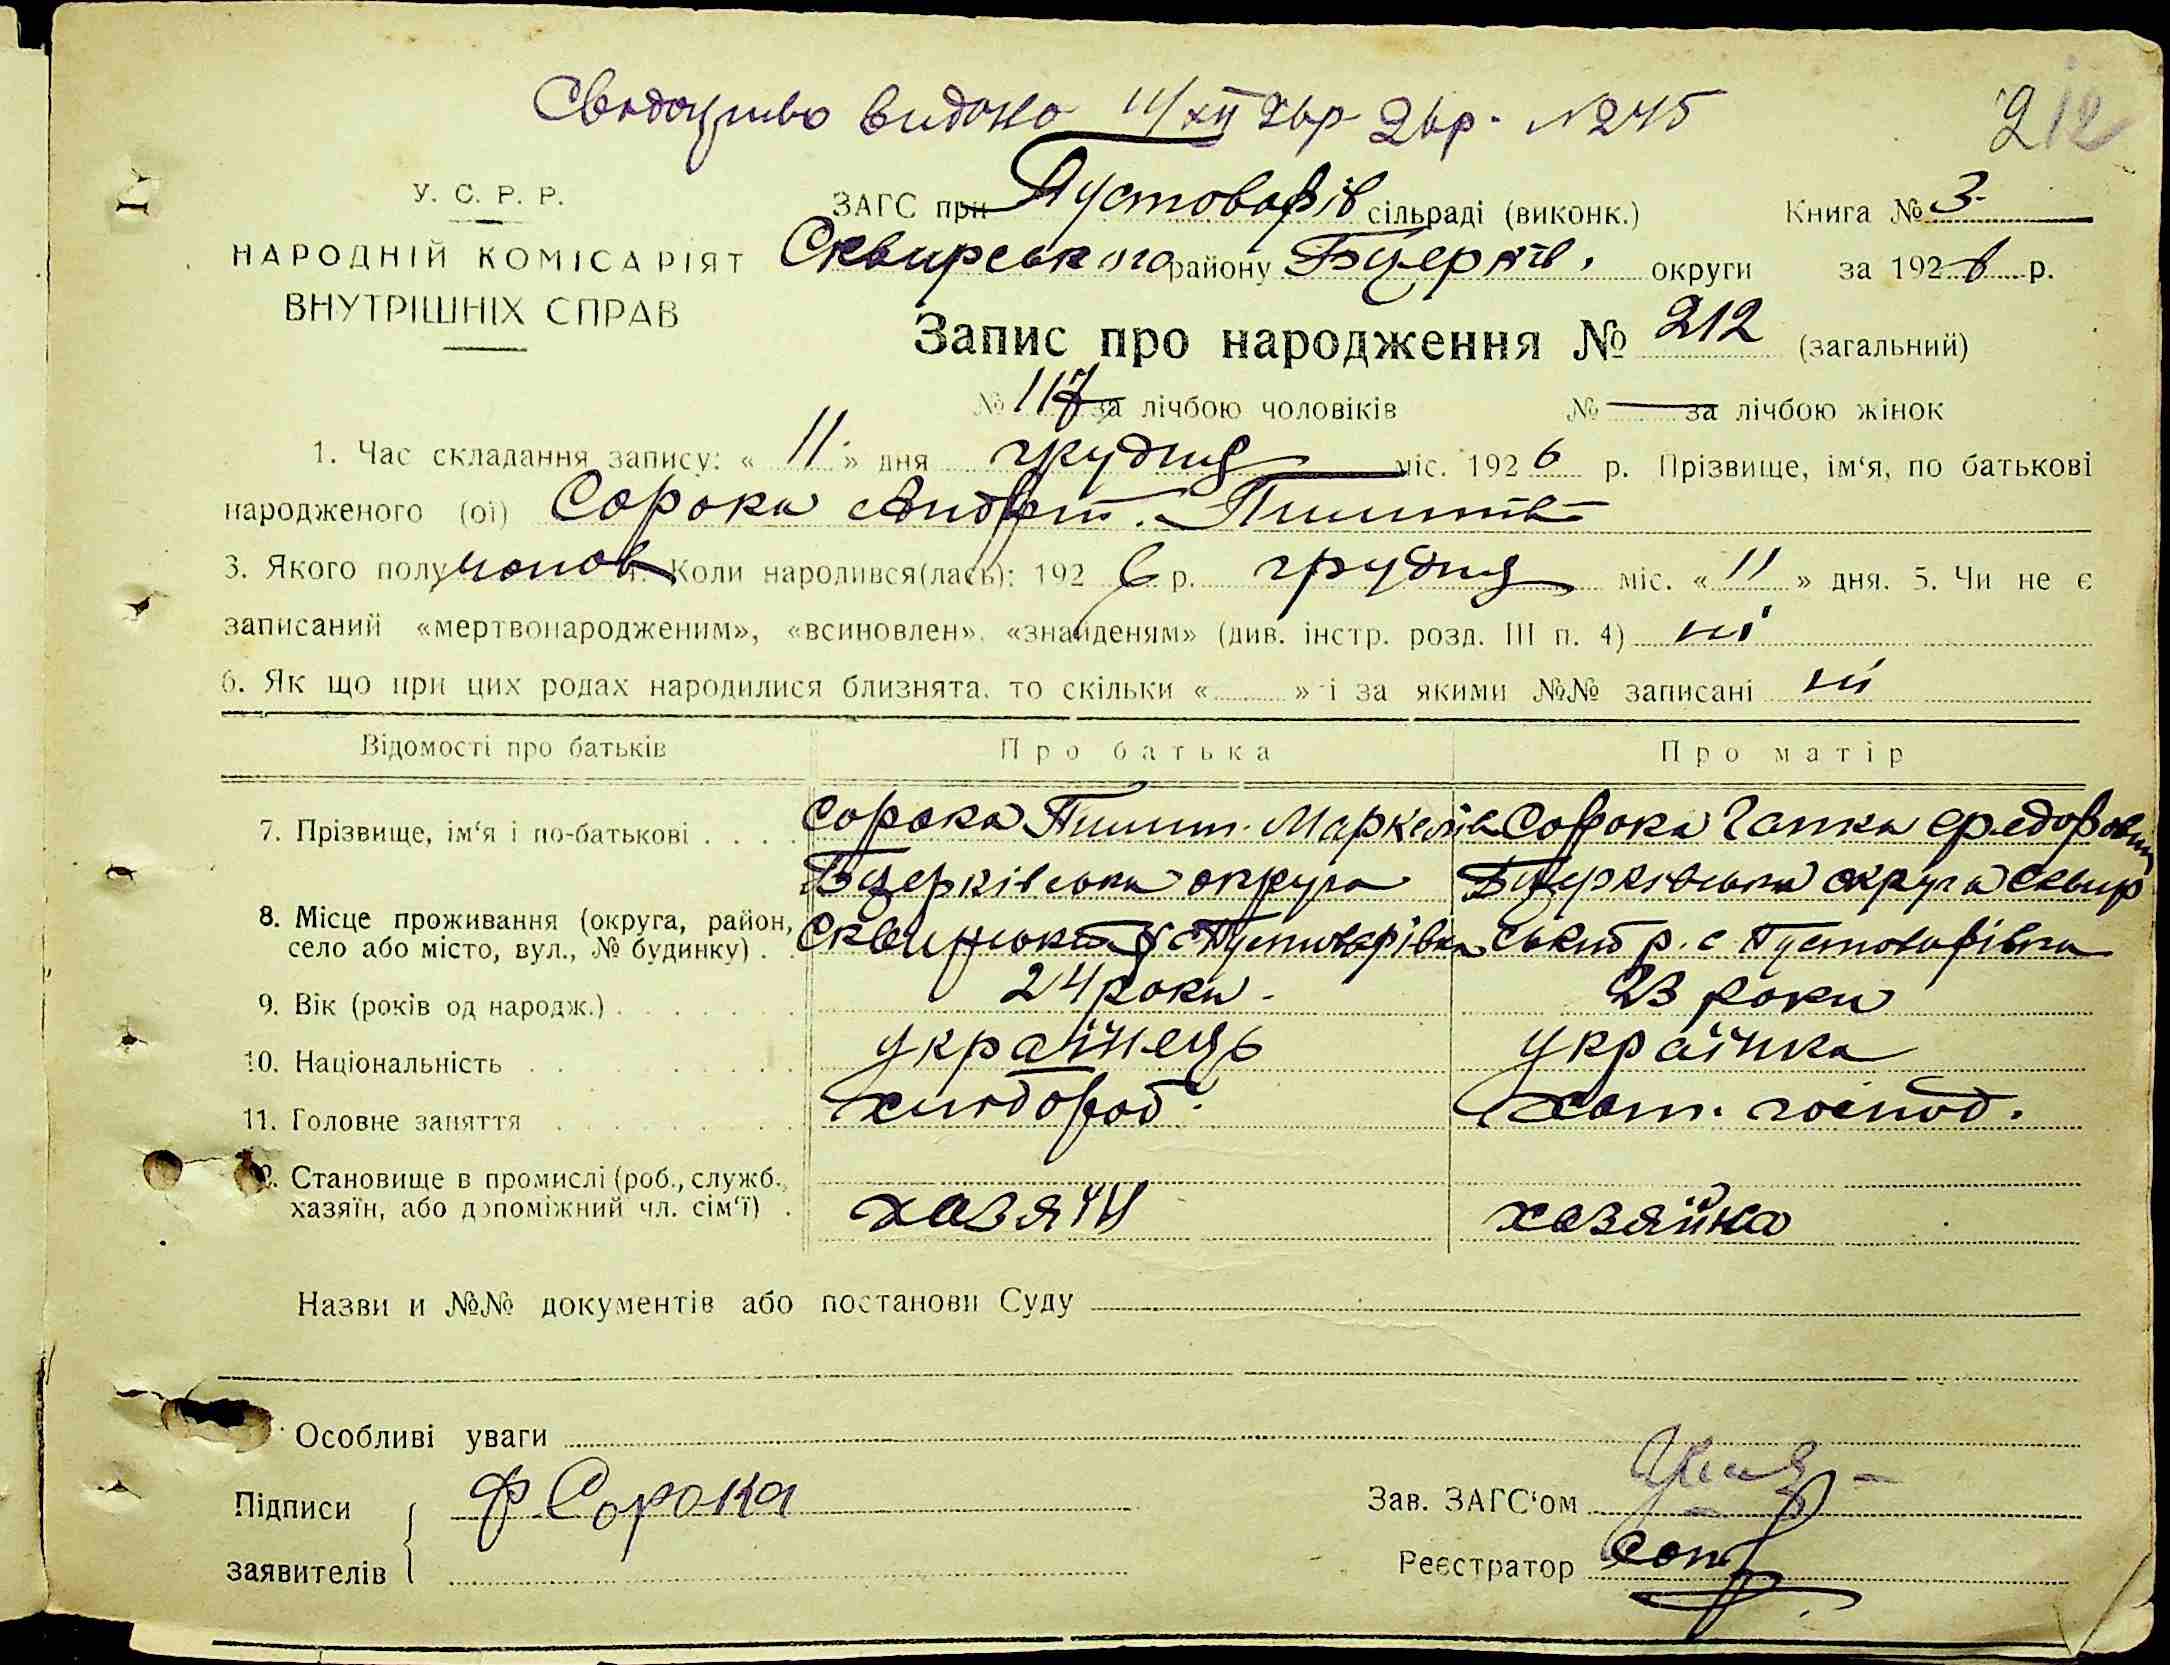 Свідоцтво видано 11/XII 26р. №245
212
У. С. Р. Р.
НАРОДНІЙ КОМІСАРІЯТ
ВНУТРІШНІХ СПРАВ
ЗАГС при Пустоварів сільраді (виконк.) Книга № 3
Сквирського району Бцерків. округи за 1926 р.
Запис про народження № 212 (загальний)
№ 117 за лічбою чоловіків № — за лічбою жінок
1. Час складання запису: « 11 » дня грудня міс. 1926 р. Прізвище, ім‘я, по батькові
народженого (ої) Сорока Андрей Пилипів
3. Якого полу чолов 4. Коли народився(лась): 1926 р. грудня міс. « 11 » дня. 5. Чи не є
записаний «мертвонародженим», «всиновлен», «знайденям» (див. інстр. розд. III п. 4) ні
6. Як що при цих родах народилися близнята, то скільки « » і за якими №№ записані ні
Відомості про батьків Про батька Про матір
7. Прізвище, ім‘я і по-батькові Сорока Пилип Маркелів Сорока Гапка Федоровн
8. Місце проживання (округа, район, село або місто, вул., № будинку) Бцерківська округа Сквирський р с Пустоварівка Бцерківська округа Сквирський р. с Пустоварівка
9. Вік (років од народж.) 24 роки 23 роки
10. Національність українець українка
11. Головне заняття хлібороб. хат. господ.
12. Становище в промислі (роб., служб., хазяїн, або допоміжний чл. сім‘ї) хазяїн хазяйка
Назви и №№ документів або постанови Суду
Особливі уваги
Підписи Ф Сорока Зав. ЗАГС‘ом
заявителів Реєстратор